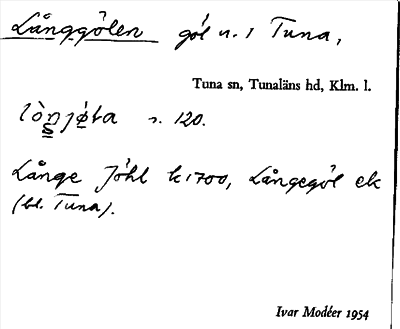 Långgölen göl n. 1 Tuna,
Tuna sn, Tunaläns hd, Klm. l.
s. 120.
Långe Jöhl k 1700, Långegöl ek
(bl. Tuna).
Ivar Modéer 1954